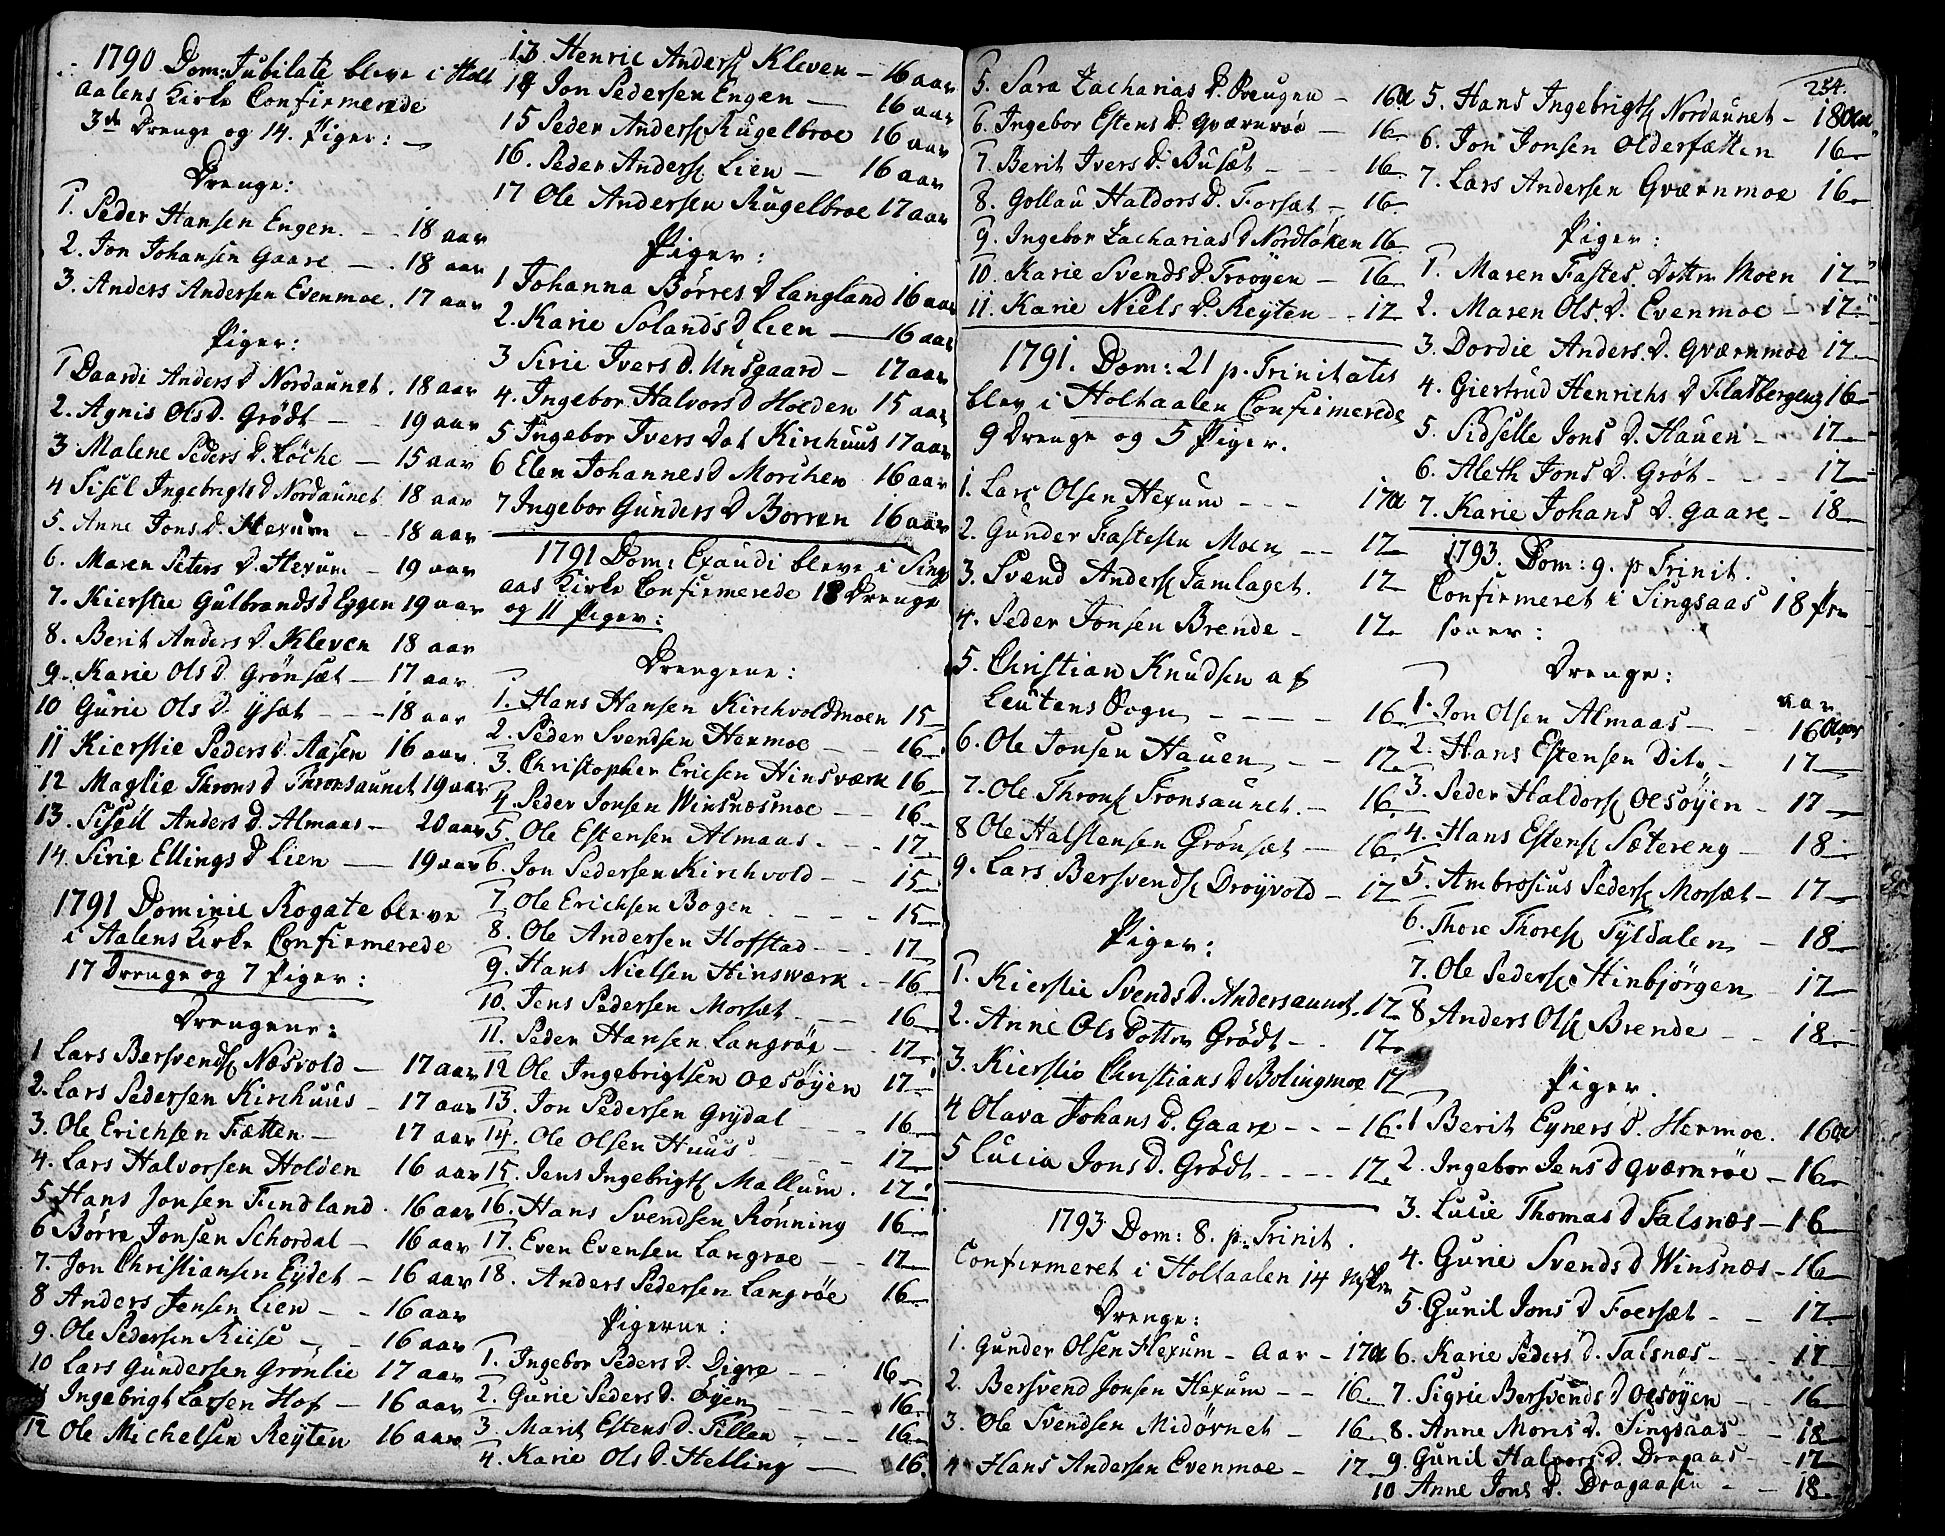 1790 Dom: Jubilate bleve i Holt
aalens Kirke Confirmerede
3de Drenge og 14. Piger:
Drenge:
1. Peder Hansen Engen. - 18 aar
2. Jon Johansen Gaare - 18 aar
3. Anders Andersen Evenmoe. 17 aar
Piger:
1 Daardi Anders D Nordaunet. 18 aar
2. Agnis Ols D. Grödt - 19 aar
3 Malene Peders D. Löche - 15 aar
4 Sisel Ingebrigts D Nordaunet 18 aar
5. Anne Jons D. Hexum - 18 aar
6. Maren Peters D. Hexum - 19 aar
7. Kierstie Gulbrands D Eggen 19 aar
8. Berit Anders D Kleven 18 aar
9. Karie Ols D. Grönsæt - 17 aar
10 Gurie Ols D. Ysæt - - 18 aar
11 Kierstie Peders D. Aasen 16 aar
12 Maglie Throns D Thronsaunet 19 aar
13. Sisell Anders D. Almaas - 20 aar
14. Sirie Ellings D Lien - 19 aar
1791 Dominic Rogate bleve
i Aalens Kirke Confirmerede
17 Drenge og 7 Piger:
Drengene:
1 Lars Bersvends Næsvold - 17 aar
2. Lars Pedersen Kirchuus - 17 aar
3. Ole Erichsen Fætten - 17 aar
4. Lars Halvorsen Holden 16 aar
5 Hans Jonsen Findland. 16 aar
6 Börre Jonsen Schordal - 16 aar
7. Jon Christiansen Eydet - 16 aar
8 Anders Jensen Lien - - 16 aar
9. Ole Pedersen Riise - 16 aar
10 Lars Gundersen Grönlie 17 aar
11 Ingebrigt Larsen Hof - 16 aar
12 Ole Michelsen Reyten 16 aar
13 Henric Anders Kleven - 16 aar
14 Jon Pedersen Engen - 16 aar
15 Peder Anders Kugelbroe 16 aar
16. Peder Anders Lien - 16 aar
17 Ole Andersen Kugelbroe 17 aar
Piger:
1 Johanna Börres D Langland 16 aar
2. Karie Solands D Lien - 16 aar
3 Sirie Ivers D. Unsgaard - 17 aar
4. Ingebor Halvors D Holden 15 aar
5 Ingebor Ivers Dat Kirchuus 17 aar
6 Elen Johannes D Morchen 16 aar
7 Ingebor Gunders D Borren 16 aar
1791 Dom: Exaudi bleve i Sings
aas Kirke Confirmerede 18 Drenge
og 11 Piger:
Drengene:
1. Hans Hansen Kirchvoldmoen 15
2. Peder Svendsen Hermoe - - 16
3. Christopher Ericsen Hinsværk 16
4. Peder Jonsen Winsnesmoe - - 16
5. Ole Estensen Almaas. - - 17
6. Jon Pedersen Kirchvold - - 15
7. Ole Erichsen Bogen - - 15
8. Ole Andersen Hofstad - - 17
9. Hans Nielsen Hinswærk - - 16
10. Jens Pedersen Morsæt - - 16
11. Peder Hansen Langröe - - 17
12 Ole Ingebrigtsen Oesöyen 17
13. Jon Pedersen Grydal - - 16
14. Ole Olsen Huus - - 17
15. Jens Ingebrigts Mallum. 17
16. Hans Svendsen Rönning 16
17. Even Evensen Langroe - - 17
18. Anders Pedersen Langröe 16
Pigerne:
1. Ingebor Peders D. Digre - - 16
2. Gurie Peders D. Öyen - - 16
3. Marit Estens D. Tillen - - 16
4. Karie Ols D. Helling - 16
5. Sara Zacharias D. Brengen - 16 a
6. Ingebor Estens D. Gværnröe - 16
7. Berit Ivers D. Busæt - - 16
8. Gollau Haldors D. Forsæt - 16
9. Ingebor Zacharias D Nordlöken 16
10. Karie Svends D. Troöyen - 16
11. Karie Niels D. Reyten - - 17
1791. Dom: 21 p. Trinitatis
blev i Holtaalen Confirmerede
9 Drenge og 5 Piger.
1. Lars Olsen Hexum - - - 17 a
2. Gunder Fastesen Moen - - 17
3. Svend Anders Tamlaget. 17
4. Peder Jonsen Brende - 17
5. Christian Knudsen af
Leutens Sogn - - - - 16
6. Ole Jonsen Hauen - - 17
7. Ole Throns Tronsaunet. - 16
8 Ole Halstensen Grönsæt - 16
9. Lars Bersvends Droyvold - 17
Piger:
1. Kierstie Svends D. Andersaunet. 17
2. Anne Ols Dotter Grödt - - 17
3. Kierstie Christians D Bolingmoe 17
4 Olava Johans D. Gaare - - - 16
5 Lucia Jons D. Grödt - - - 17
1793 Dom: 8. p. Trinit.
Confirmeret i Holtaalen 14
Drenge:
1. Gunder Olsen Hexum - Aar - 17 a
2. Bersvend Jonsen Hexum - - 16
3. Ole Svendsen Midövnet - 16
4 Hans Andersen Evenmoe - 17
254.
5. Hans Ingebrigts Nordaunet - 18 aar
6. Jon Jonsen Olderfætten 16
7. Lars Andersen Gværnmoe 16
Piger:
1. Maren Fastes Dotter Moen 17
2. Maren Ols D. Evenmoe - 17
3. Dordie Anders D. Gværnmoe 17
4. Giertrud Henrichs D Flatbergeng 16
5. Sidselle Jons D. Hauen - 17
6. Aleth Jons D. Gröt - - - 17
7. Karie Johans D. Gaare - 18
1793. Dom: 9. p Trinit.
Confirmeret i Singsaas 18 Per
soner:
Drenge:
aar
1. Jon Olsen Almaas - - 16 aar
2. Hans Estensen Dito - 17
3. Peder Haldors Oesöyen - 17
4. Hans Estens Sætereng - 18
5. Ambrosius Peders Morsæt - 17
6. Thore Thores Tyldalen - 18
7. Ole Peders Hinbjörgen 17
8. Anders Ols Brende - - 18
Piger.
1 Berit Eyners D. Hermoe. 16 a
2. Ingebor Jens D Gværnröe - 16
3. Lucie Thomas D Talsnæs - 16
4. Gurie Svends D Winsnæs - 16
5. Gunil Jons D Foersæt - - 17
6. Karie Peders D. Talsnæs - - 17
7. Sigrie Bersvends D Oesöyen - 16
8. Anne Mons D. Singsaas - - 18
9. Gunil Halvors D. Dragaas - - 17
10 Anne Jons D. Dragaasen - - 18